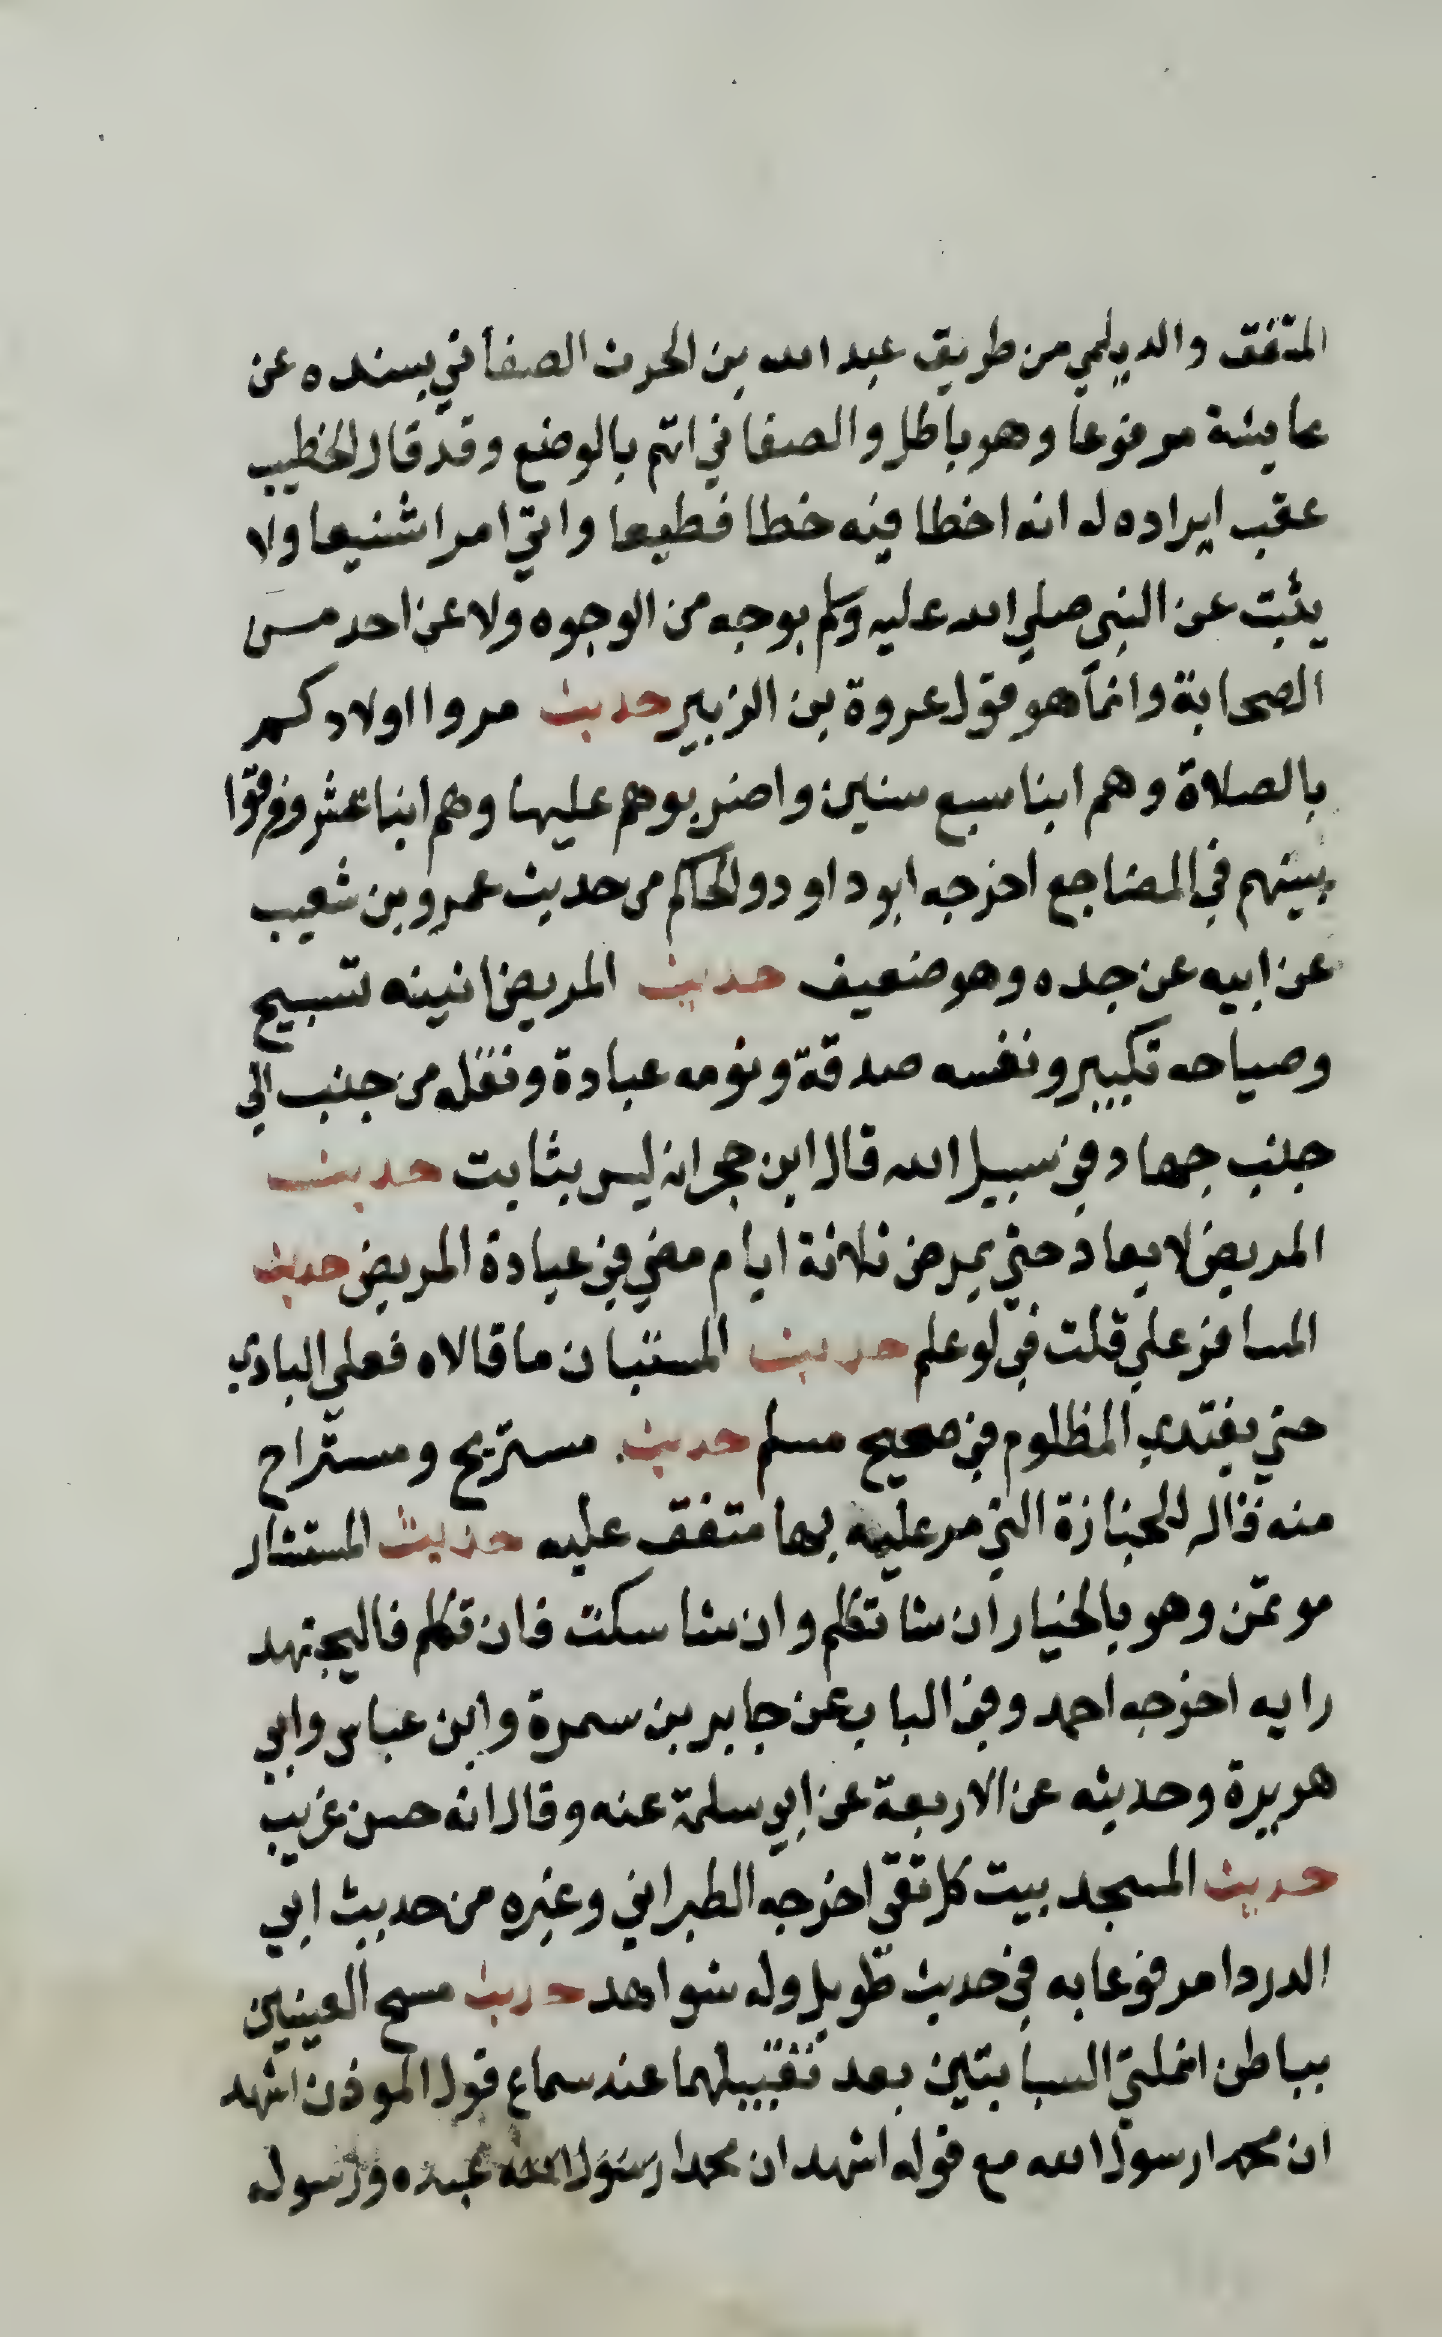 المتفق والديلمي من طريق عبد الله بن الحرث الصفاني بسنده عن
عايشة مرفوعا وهو باطل والصفاني اتهم بالوضع وقد قال الخطيب
عقب ايراده له انه اخطا فيه خطا فظيعا واتي امرا شنيعا ولا
يثبت عن النبي صلي الله عليه وسلم بوجه من الوجوه ولا عن احد من
الصحابة وانما هو قول عروة بن الزبير حديث مروا اولادكم
بالصلاة وهم ابنا سبع سنين واضربوهم عليها وهم ابنا عشر وفرقوا
بينهم في المضاجع اخرجه ابو داود والحاكم من حديث عمرو بن شعيب
عن ابيه عن جده وهو ضعيف حديث المريض انينه تسبيح
وصياحه تكبير ونفسه صدقة ونومه عبادة ونقله من جنب الي
جنب جهاد في سبيل الله قال ابن حجر انه ليس بثابت حديث
المريض لا يعاد حتي يمرض ثلاثة ايام مضي في عيادة المريض حديث
المسافر علي قلت في لو علم حديث المستبان ما قالاه فعلي البادي
حتي يفتدي المظلوم في صحيح مسلم حديث مستريح ومستراح
منه قاله للجنازة التي مر عليه بها متفق عليه حديث المستشار
موتمن وهو بالخيار ان شا تكلم وان شا سكت فان تكلم فاليجتهد
رايه اخرجه احمد وفي الباب عن جابر بن سمرة وابن عباس وابي
هريرة وحديثه عن الاربعة عن ابي سلمة عنه وقال انه حسن غريب
حديث المسجد بيت كل تقي اخرجه الطبراني وغيره من حديث ابي
الدردا مرفوعا به في حديث طويل وله شواهد حديث مسح العينين
بباطن انملتي السبابتين بعد تقبيلهما عند سماع قول الموذن اشهد
ان محمدا رسول الله مع قوله اشهد ان محمدا رسول الله عبده ورسوله